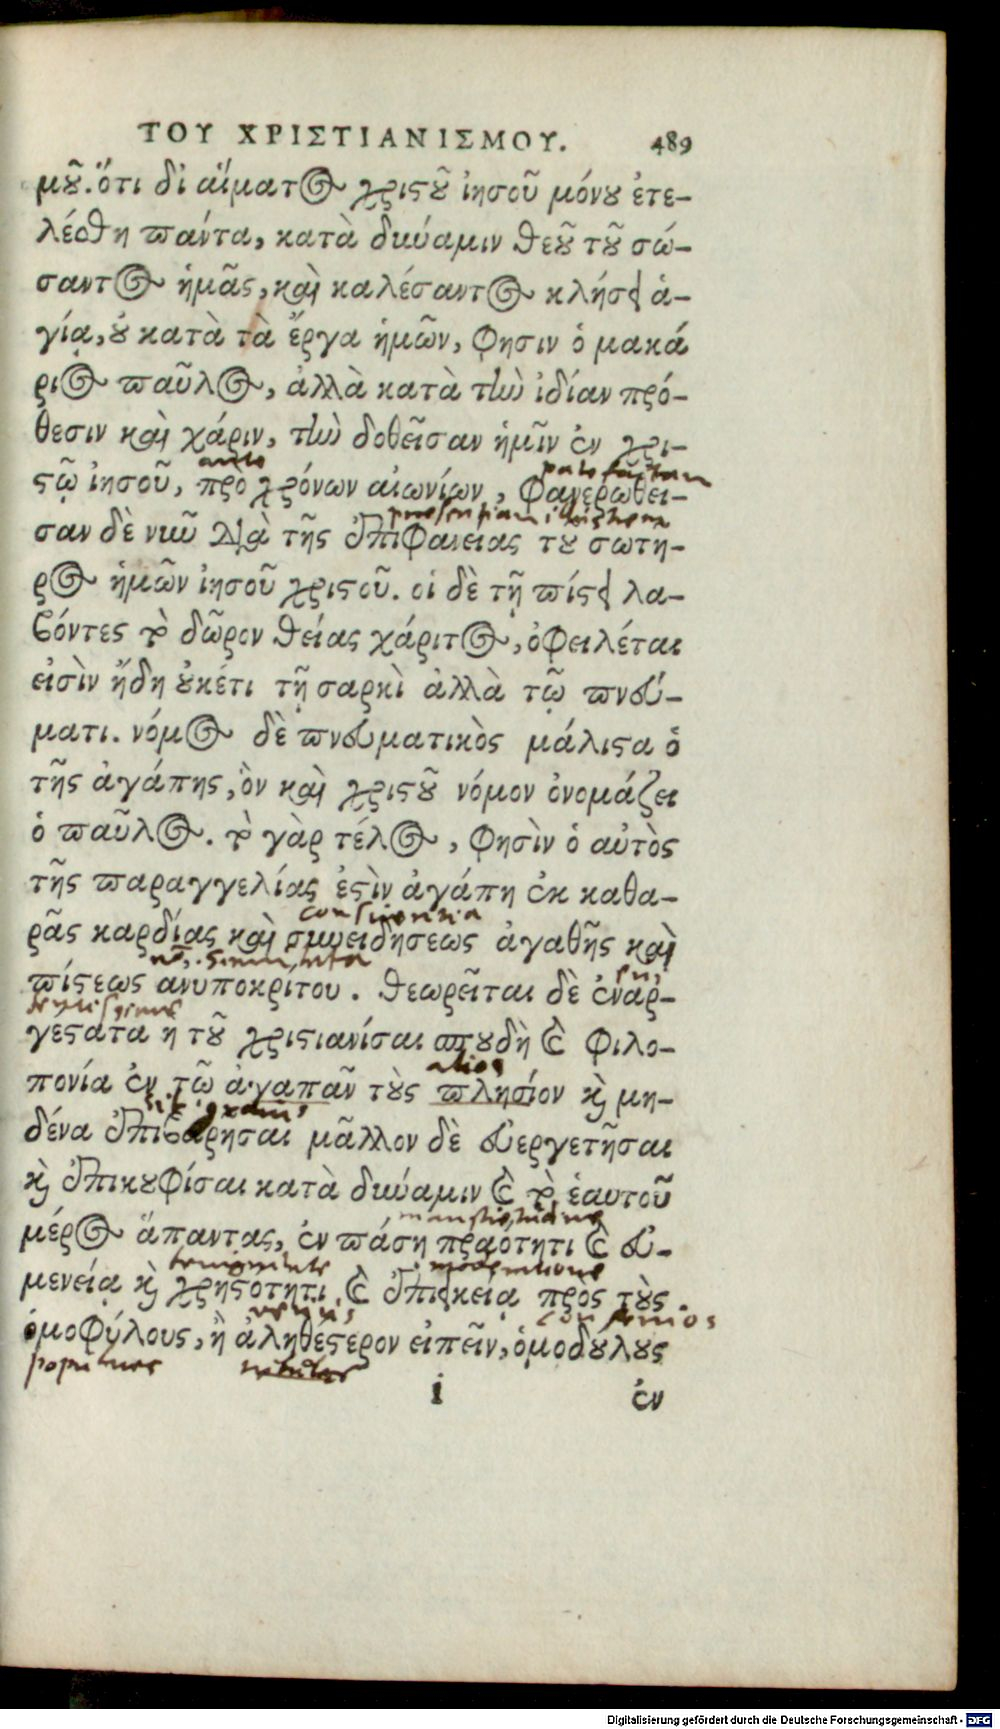 ΤΟΥ ΧΡΙΣΤΙΑΝΙΣΜΟΥ. 489
μȣ͂. ὅτι δι αἵματος χριϛȣ͂ ἰησοῦ μόνȣ ἐτε-
λέσθη ϖάντα, κατὰ δύναμιν θεȣ͂ τȣ͂ σώ-
σαντος ἡμᾶς, καὶ καλέσαντος κλήσει ἁ-
γίᾳ, ȣ κατὰ τὰ ἔργα ἡμῶν, φησιν ὁ μακά
ριος ϖαῦλος, ἀλλὰ κατὰ τὴν ἰδίαν πρό-
θεσιν καὶ χάριν, τὴν δοθεῖσαν ἡμῖν ἐν χρι-
ante patefactam
ϛῷ ἰησοῦ, πρὸ χρόνων αἰωνίων, φανερωθεῖ-
praesentiam
σαν δὲ νῦν διὰ τῆς ἐπιφανείας τȣ σωτῆ-
ρος ἡμῶν ἰησοῦ χριϛοῦ. οἱ δὲ τῇ ϖίϛει λα-
βόντες τὸ δῶρον θείας χάριτος, ὀφειλέται
εἰσὶν ἤδη ȣκέτι τῇ σαρκὶ ἀλλὰ τῷ ϖνεύ-
ματι. νόμος δὲ ϖνευματικὸς μάλιϛα ὁ
τῆς ἀγάπης, ὃν καὶ χριϛȣ͂ νόμον ὀνομάζει
ὁ ϖαῦλος. τὸ γὰρ τέλος, φησὶν ὁ αὐτὸς
τῆς ϖαραγγελίας ἐϛὶν ἀγάπη ἐκ καθα-
conscientia
ρᾶς καρδίας καὶ συνειδήσεως ἀγαθῆς καὶ
ϖίϛεως ανυποκρίτου. θεωρεῖται δὲ ἐναρ-
γέϛατα η τȣ͂ χριϛιανίσαι σπȣδὴ καὶ φιλο-
alios
πονία ἐν τῶ ἀγαπαῦ τὺς ϖλησίον κ̀ μη-
δένα ἐπιβαρῆσαι μᾶλλον δὲ εὐεργετῆσαι
κ̀ ἐπικȣφίσαι κατὰ δύναμιν καὶ τὸ ἑαυτοῦ
mansuetudine
μέρος ἅπαντας, ἐν ϖάσῃ πραότητι καὶ εὐ-
benignitate moderatione
μενείᾳ κ̀ χρηϛότητι, καὶ ἐπιεικείᾳ πρὸς τὺς
verius conservos
ὁμοφύλους, ἢ ἀληθέϛερον εἰπεῖν, ὁμοδȣλȣς
populares
i ἐν
Digitalisierung gefördert durch die Deutsche Forschungsgemeinschaft - DFG